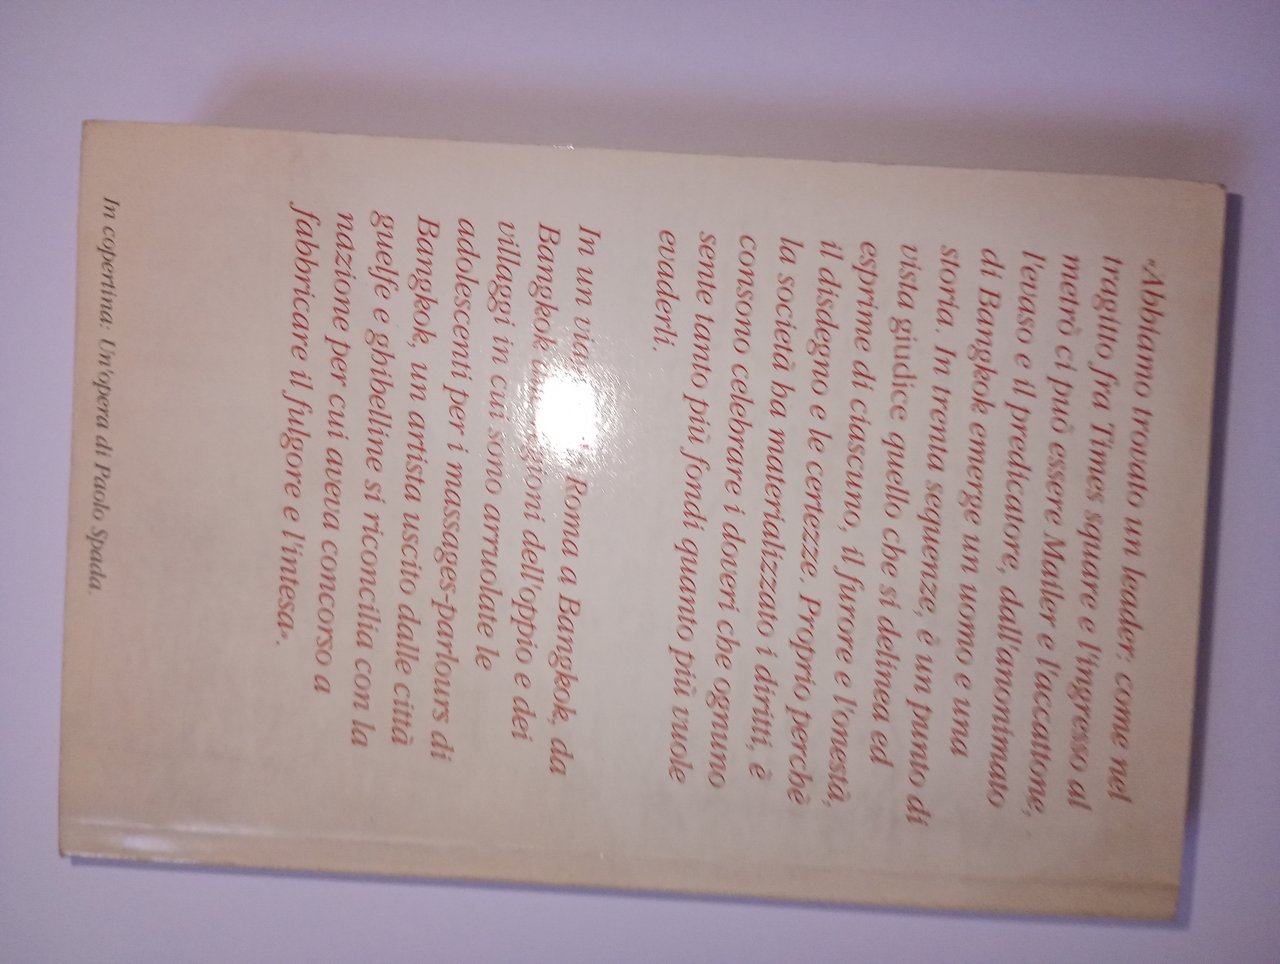 «Abbiamo trovato un leader: come nel
tragitto fra Times square e l'ingresso al
metrò ci può essere Mailer e l'accattone,
l'evaso e il predicatore, dall'anonimato
di Bangkok emerge un uomo e una
storia. In trenta sequenze, è un punto di
vista giudice quello che si delinea ed
esprime di ciascuno, il furore e l'onestà,
il disdegno e le certezze. Proprio perchè
la società ha materializzato i diritti, è
consono celebrare i doveri che ognuno
sente tanto più fondi quanto più vuole
evaderli.
In un Roma a Bangkok, da
Bangkok dell'oppio e dei
villaggi in cui sono arruolate le
adolescenti per i massages-parlours di
Bangkok, un artista uscito dalle città
guelfe e ghibelline si riconcilia con la
nazione per cui aveva concorso a
fabbricare il fulgore e l'intesa».
In copertina: Un'opera di Paolo Spada.